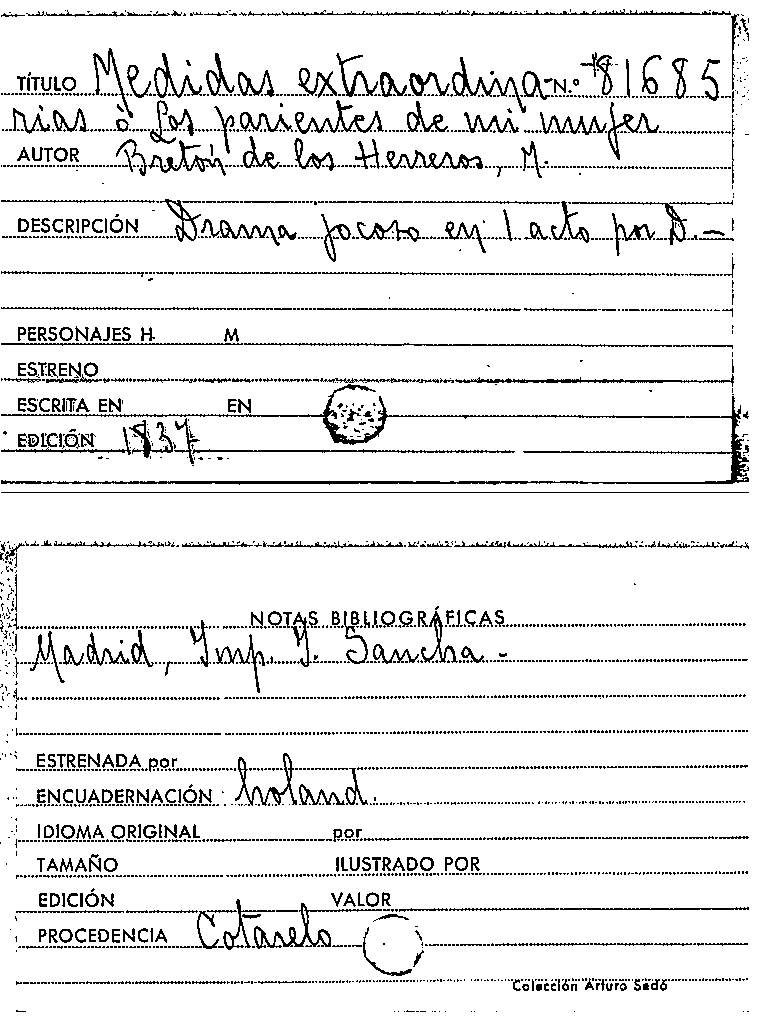 TÍTULO Medidas extraordina- N.º 81685
rias ò Los parientes de mi mujer
AUTOR Bretón de los Herreros, M.
DESCRIPCIÓN Drama jocoso en 1 acto por D. —
PERSONAJES H. M
ESTRENO
ESCRITA EN EN
EDICIÓN 1837
NOTAS BIBLIOGRÁFICAS
Madrid, Imp. I. Sancha -
ESTRENADA por
ENCUADERNACIÓN holand.
IDIOMA ORIGINAL por
TAMAÑO ILUSTRADO POR
EDICIÓN VALOR
PROCEDENCIA Cotarelo
Colección Arturo Sedó